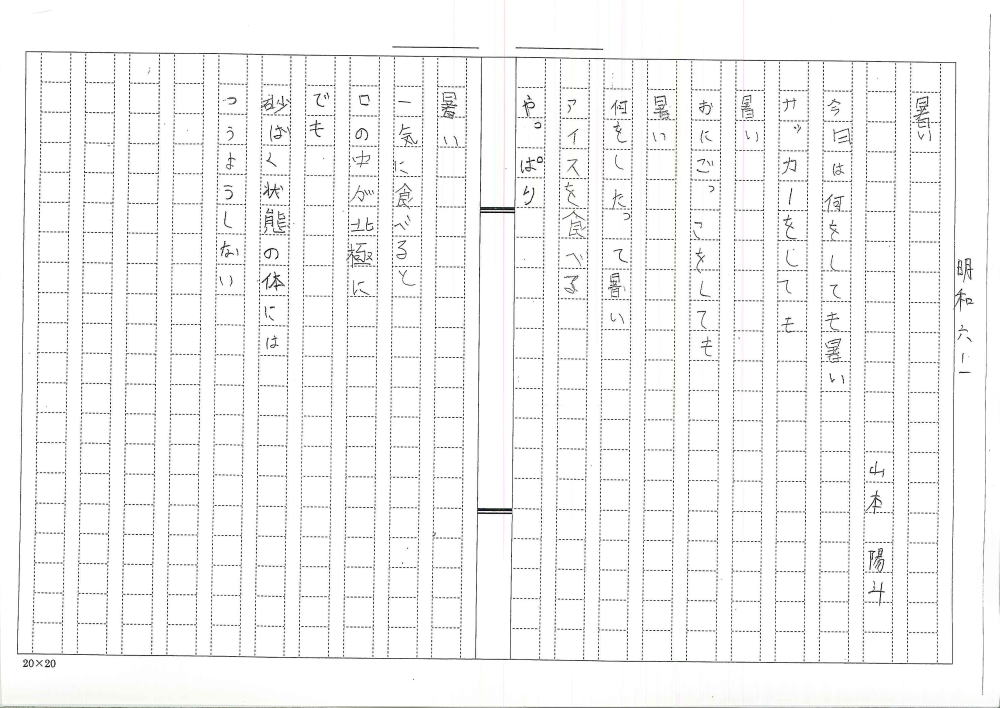 明和六ー一
暑い
山本 陽斗
今日は何をしても暑い
サッカーをしても
暑い
おにごっこをしても
暑い
何をしたって暑い
アイスを食べる
やっぱり
暑い
一気に食べると
口の中が北極に
でも
砂ばく状態の体には
つうようしない
20×20